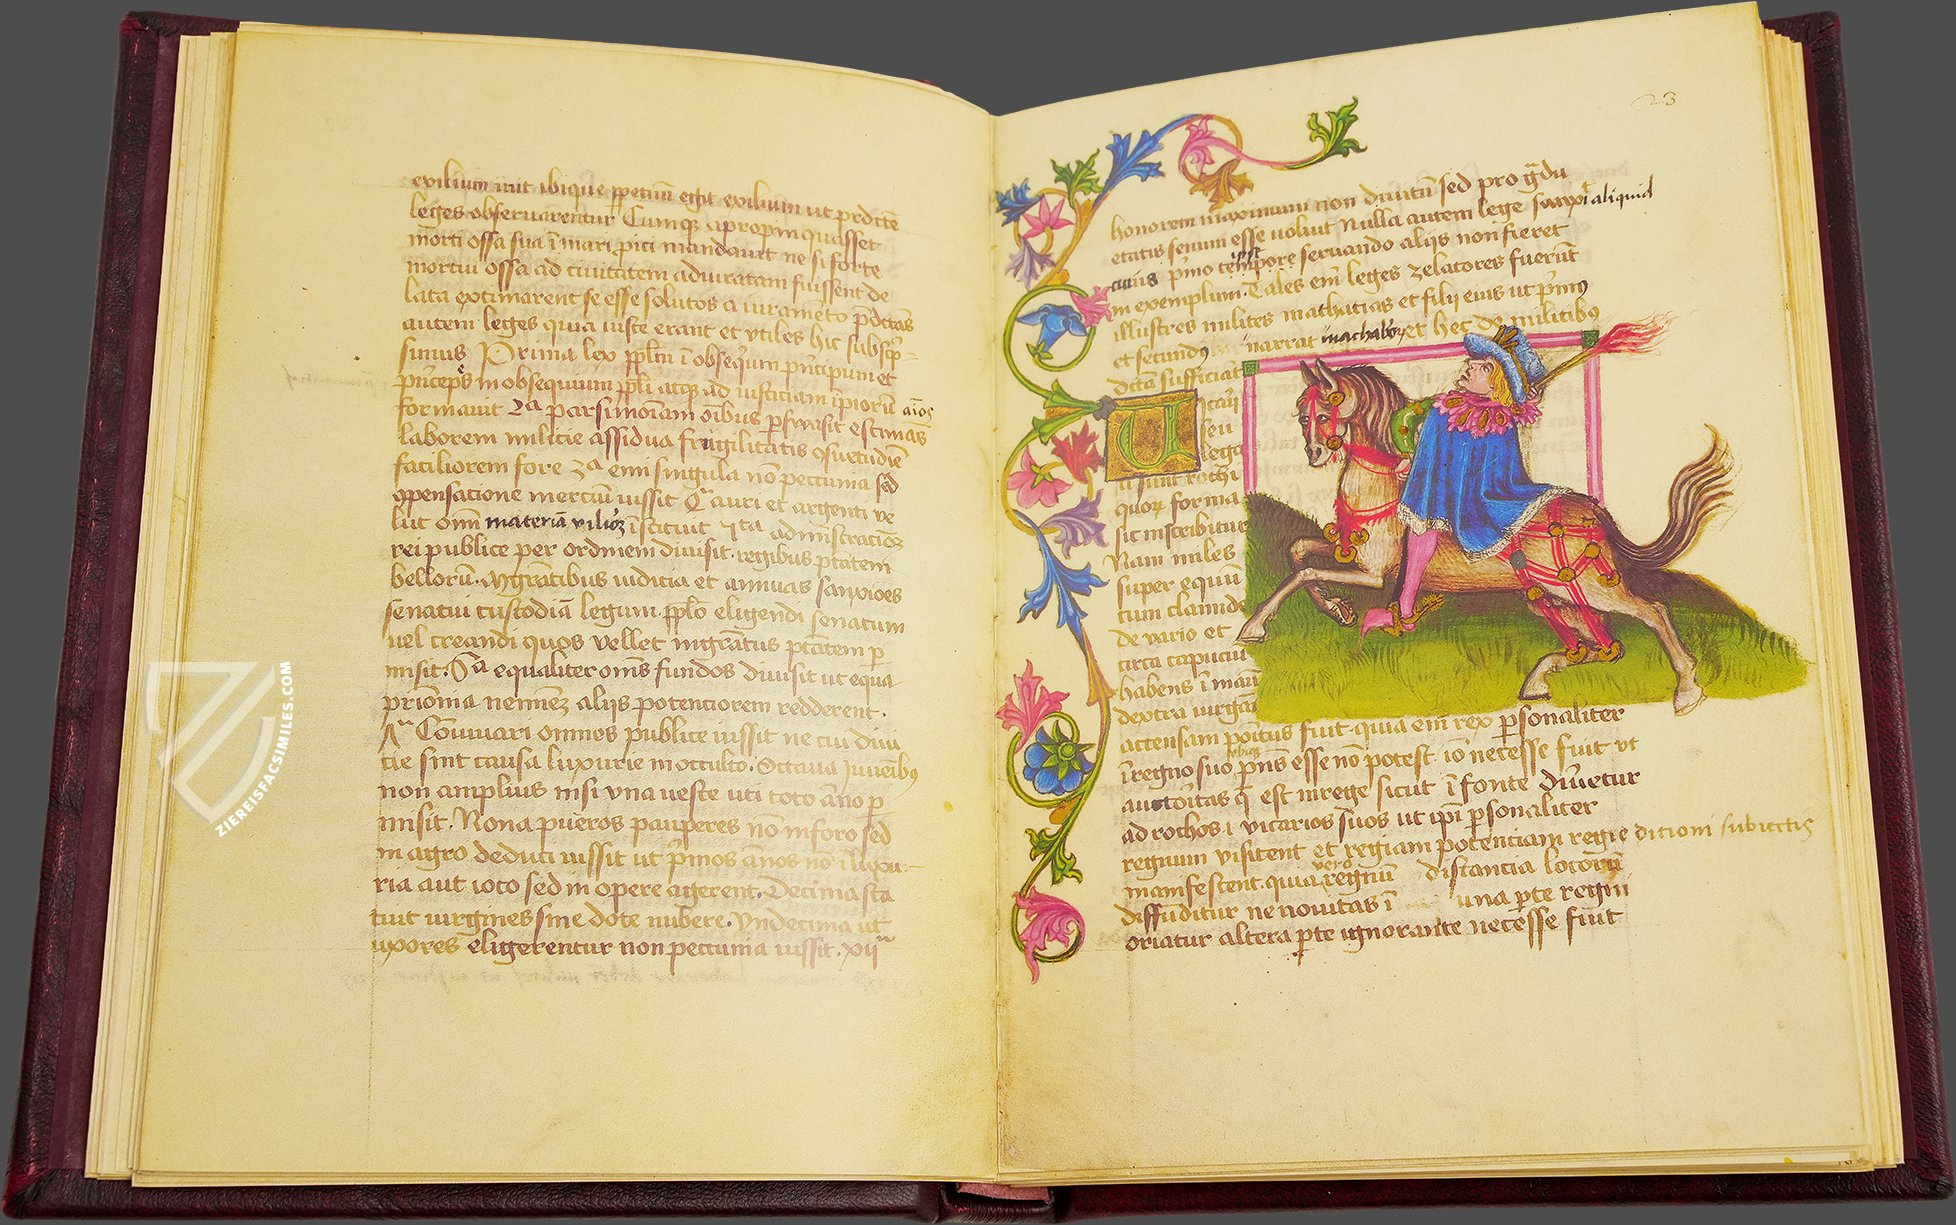 exilium iuit ibique ꝑpetuū egit exilium ut p̄dc̄te
leges obseruarentur Cumqꝫ apropinquasset
morti ossa sua ī mari proici mandauit ne si forte
mortui ossa ad ciuitatem adiuratam fuissent de
lata extimarent se esse solutos a iuramēto p̄dc̄tas
autem leges quia iuste erant et vtiles hic subscp̄-
simus Prima lex ppl̄m ī obseq̄um prīcipum et
prīcipes in obsequium ppl̄i atqꝫ ad iusticiam ip̄iorū aīos
formauit 2ᵃ parsimōiam oībus ꝑswasit estimās
laborem milicie assidua frugilitatis ꝯsuetudīe
faciliorem fore 3ᵃ emi singula nō peccunia sed
ꝯpensatione merciū iussit 4ᵃ auri et argenti ve
lut omī materiā vilioꝝ īstituit 5ta admīstracioꝫ
rei publice per ordinem diuisit. regibus ptātem
bellorū. mgrātibus iudicia et annuas sanxioēs
senatui custodiā legum. ppl̄o eligendi senatum
uel creandi quos vellet mgrātus ptātem ꝑ
misit. 6ᵃ equaliter om̄s fundos diuisit ut equa
prīonia neminē aliis potenciorem redderent.
7ᵃ Conuiuari omnes publice iussit ne cui diui
cie sint causa luxurie in occulto. Octaua iuuēibꝯ
non amplius nisi vna ueste uti toto āno ꝑ
misit. Nona pueros pauperes nō in foro sed
in agro deduci iussit ut p̄mos ānos nō ī luxu
ria aut ioco sed in opere agerent. Decima sta
tuit uirgines sine dote nubere. Vndecima ut
uxores eligerentur non peccunia iussit. xij̄ᵃ
23
honorem maximum non diuitū sed pro gr̄du
etatis senum esse voluit Nulla autem lege sanxit aliquid
cuius p̄mo tempore seruando aliis non fieret
in exemplum. Tales em̄ leges zelatores fuerūt
illustres milites mathatias et filii eius ut p̄mꝯ
et secundꝯ narrat machabeoꝝ et hec de militibus
dicta sufficiat
U icarii
seu
lega
ti sunt rochi
quoꝝ forma
sic inscribitur
Nam miles
super equū
cum clamide
de vario et
circa capuciū
habens ī manu
dextra uirgam
actensam poītus fuit. quia em̄ rex ꝑsonaliter
ī regno suo ꝑn̄s ēsse nō potest iō necesse fuit vt
auctōitas q̄ est in rege sicut ī fonte diriuetur
ad rochos ɩ vicarios suos ut ip̄i ꝑsonaliter
regnum visitent et regiam potenciam regie dicioni subiectis
manifestent. quia vero regnū distancia locorū
diffūditur ne nouitas ī una ꝑte regni
oriatur altera ꝑte ignorante necesse fuit
ZIEREISFACSIMILES.COM